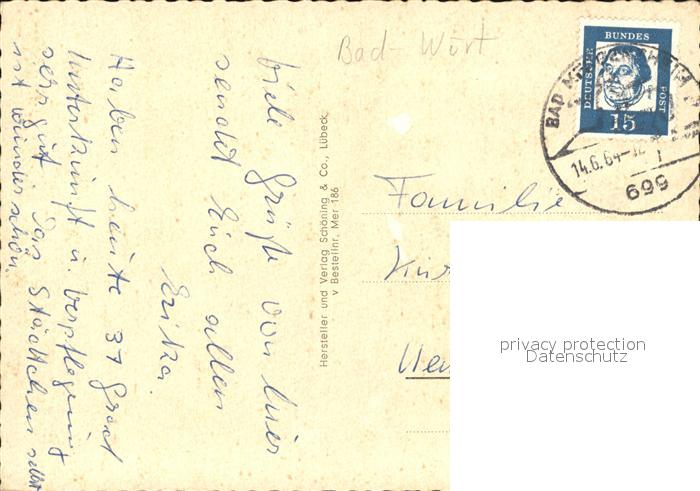 Bad-Wört
viele Grüße von hier
sendet Euch allen
Erika.
Haben heute 37 Grad
Unterkunft u. Verpflegung
sehr gut. Das Städtchen selbst
ist wunderschön.
Hersteller und Verlag Schöning & Co., Lübeck
v Bestellnr. Mer 186
DEUTSCHE
BUNDES
POST
15
BAD
14.6.64-12
699
Familie
privacy protection
Datenschutz